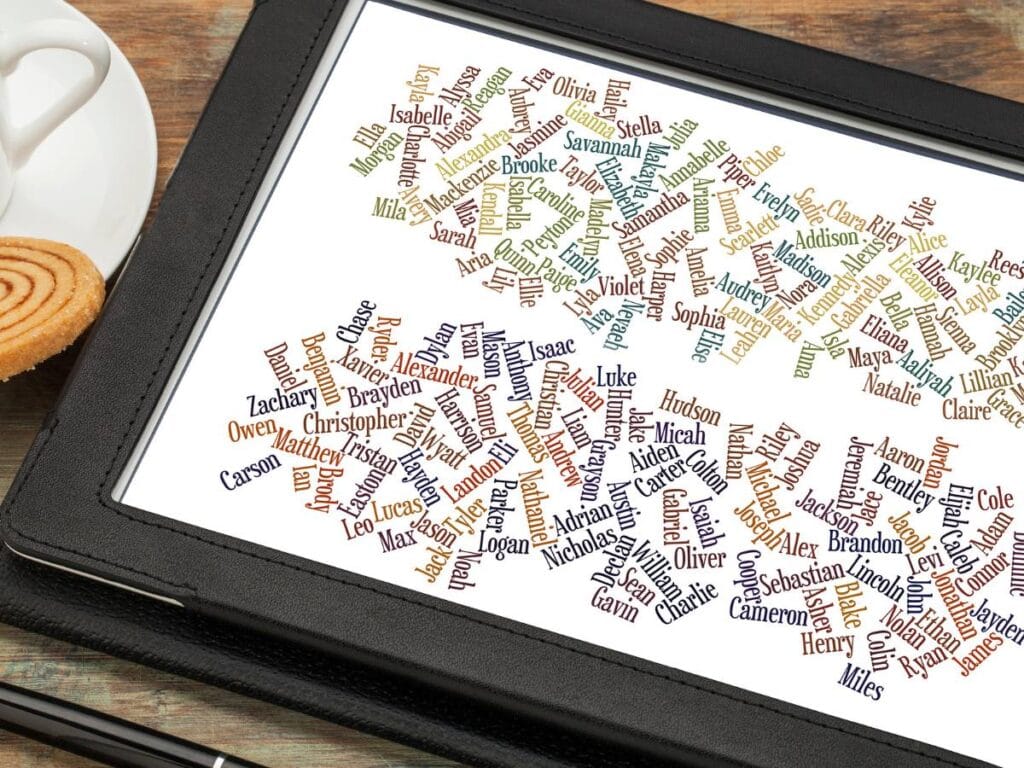 Kayla
Alyssa
Reagan
Eva
Olivia
Hailey
Isabelle
Abigail
Aubrey
Jasmine
Gianna
Stella
Julia
Ella
Morgan
Charlotte
Alexandra
Savannah
Makayla
Annabelle
Piper
Chloe
Mackenzie
Brooke
Taylor
Elizabeth
Samantha
Arianna
Emma
Evelyn
Sadie
Clara
Riley
Kylie
Mila
Avery
Mia
Kendall
Isabella
Caroline
Madelyn
Scarlett
Addison
Alexis
Alice
Sarah
Quinn
Peyton
Elena
Sophie
Kaitlyn
Madison
Kennedy
Gabriela
Eleanor
Allison
Kaylee
Aria
Lily
Ellie
Paige
Emily
Violet
Harper
Amelia
Audrey
Nora
Layla
Lyla
Ava
Nevaeh
Sophia
Elise
Lauren
Leah
Maria
Anna
Isla
Bella
Hannah
Sienna
Eliana
Maya
Aaliyah
Natalie
Lillian
Claire
Grace
Brooklyn
Chase
Ryder
Dylan
Evan
Mason
Anthony
Isaac
Daniel
Benjamin
Xavier
Alexander
Christian
Julian
Luke
Zachary
Brayden
Samuel
Hunter
Jake
Hudson
Owen
Christopher
David
Harrison
Thomas
Liam
Micah
Matthew
Tristan
Wyatt
Eli
Andrew
Grayson
Aiden
Carter
Colton
Nathan
Riley
Joshua
Carson
Ian
Brody
Easton
Hayden
Landon
Nathaniel
Michael
Jeremiah
Aaron
Jordan
Leo
Lucas
Max
Jason
Tyler
Parker
Adrian
Austin
Gabriel
Isaiah
Joseph
Jackson
Jace
Bentley
Elijah
Cole
Jack
Noah
Logan
Nicholas
Declan
William
Oliver
Alex
Brandon
Jacob
Caleb
Adam
Sean
Gavin
Charlie
Cooper
Sebastian
Lincoln
Levi
Connor
Cameron
Asher
Blake
John
Jonathan
Jayden
Henry
Colin
Nolan
Ethan
Ryan
James
Miles